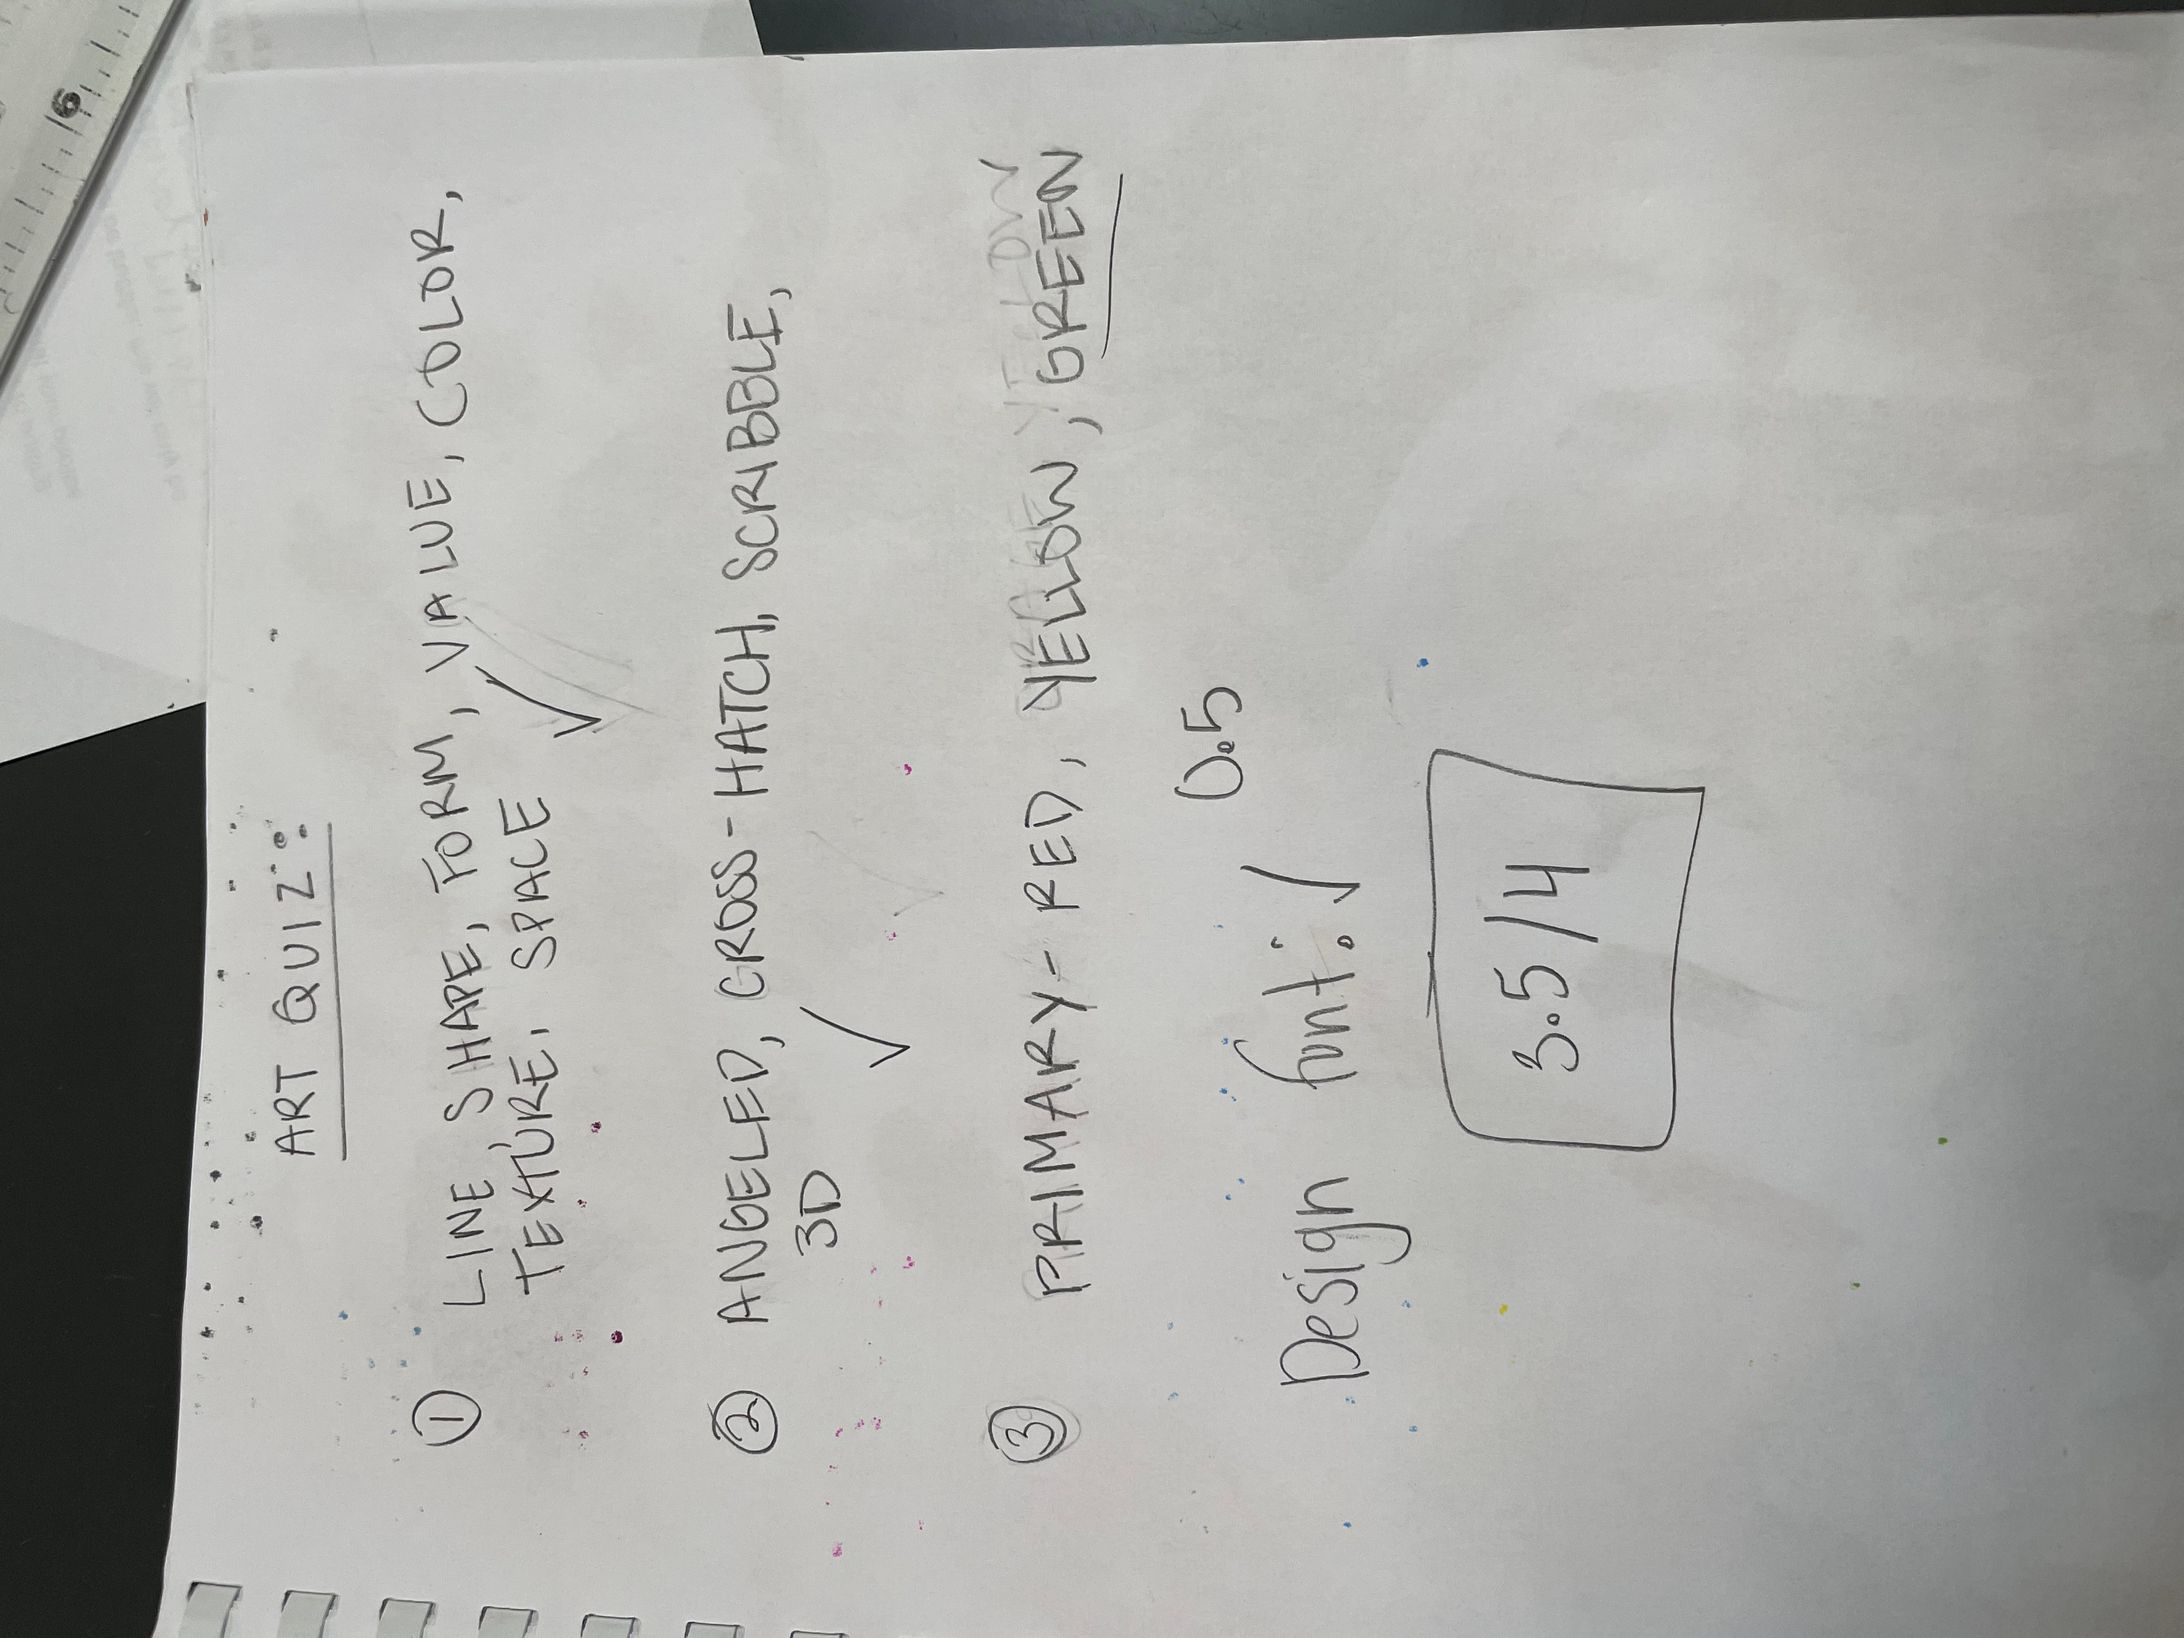 ART QUIZ:
① LINE SHAPE, FORM, VALUE, COLOR,
TEXTURE, SPACE ✓
② ANGELED, CROSS-HATCH, SCRIBBLE,
3D ✓
③ PRIMARY- RED, YELLOW, GREEN
0.5
Design font: ✓
3.5/4
16